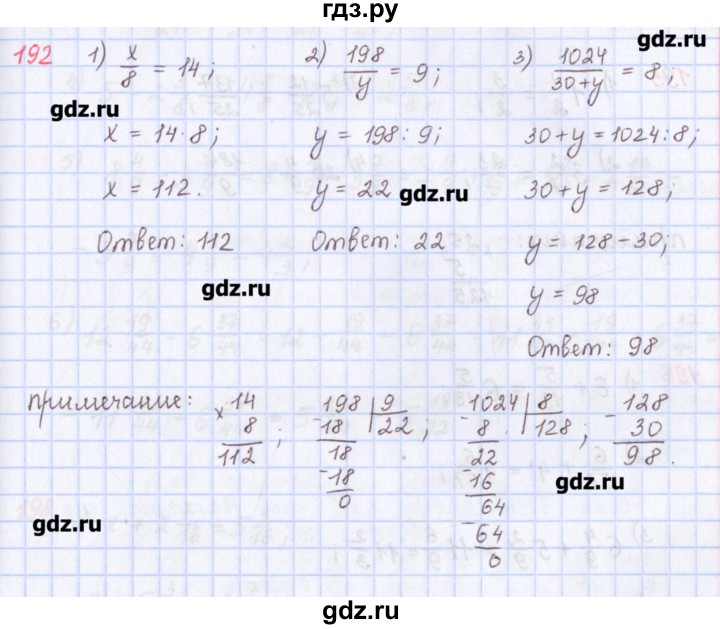 гдз.ру
192 1) x/8 = 14; 2) 198/y = 9; 3) 1024/(30+y) = 8;
x = 14·8; y = 198 : 9; 30+y = 1024:8;
x = 112. y = 22 30+y = 128;
Ответ: 112 Ответ: 22 y = 128-30;
y = 98
Ответ: 98
примечание: x 14 -198 | 9 -1024 | 8 -128
8 18 22 ; 8 128 ; 30
112 ; 18 22 98.
-18 -16
0 64
-64
0
gdz.ru
gdz.ru
gdz.ru
gdz.ru
gdz.ru
gdz.ru
gdz.ru